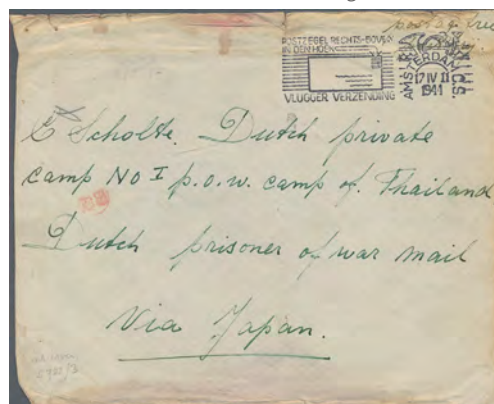 postage free
POSTZEGEL RECHTS-BOVEN
IN DEN HOEK
VLUGGER VERZENDING
AMSTERDAM
17 IV 11
1944
E Scholte. Dutch private
camp No I p.o.w. camp of. Thailand
Dutch prisoner of war mail
Via Japan.